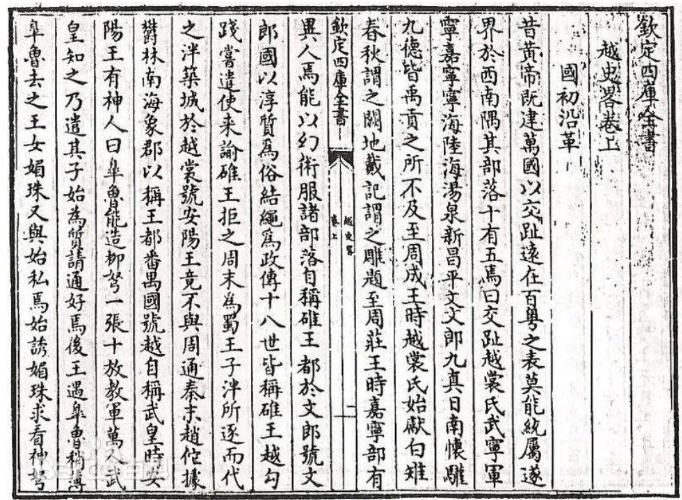 欽定四庫全書
越史畧卷上
國初沿革
昔黃帝既建萬國以交趾遠在百粵之表莫能統屬遂
界於西南隅其部落十有五焉曰交趾越裳氏武寧軍
寧嘉寧寧海陸海湯泉新昌平文文郎九真日南懷驩
九德皆禹貢之所不及至周成王時越裳氏始獻白雉
春秋謂之闕地戴記謂之雕題至周莊王時嘉寧部有
欽定四庫全書
越史畧
卷上
異人焉能以幻術服諸部落自稱碓王都於文郎號文
郎國以淳質為俗結繩為政傳十八世皆稱碓王越勾
踐嘗遣使来諭碓王拒之周末為蜀王子泮所逐而代
之泮築城於越裳號安陽王竟不與周通秦末趙佗據
欝林南海象郡以稱王都番禺國號越自稱武皇時安
陽王有神人曰臯魯能造柳弩一張十放教軍萬人武
皇知之乃遣其子始為質請通好焉後王遇臯魯稍薄
臯魯去之王女媚珠又與始私焉始誘媚珠求看神弩